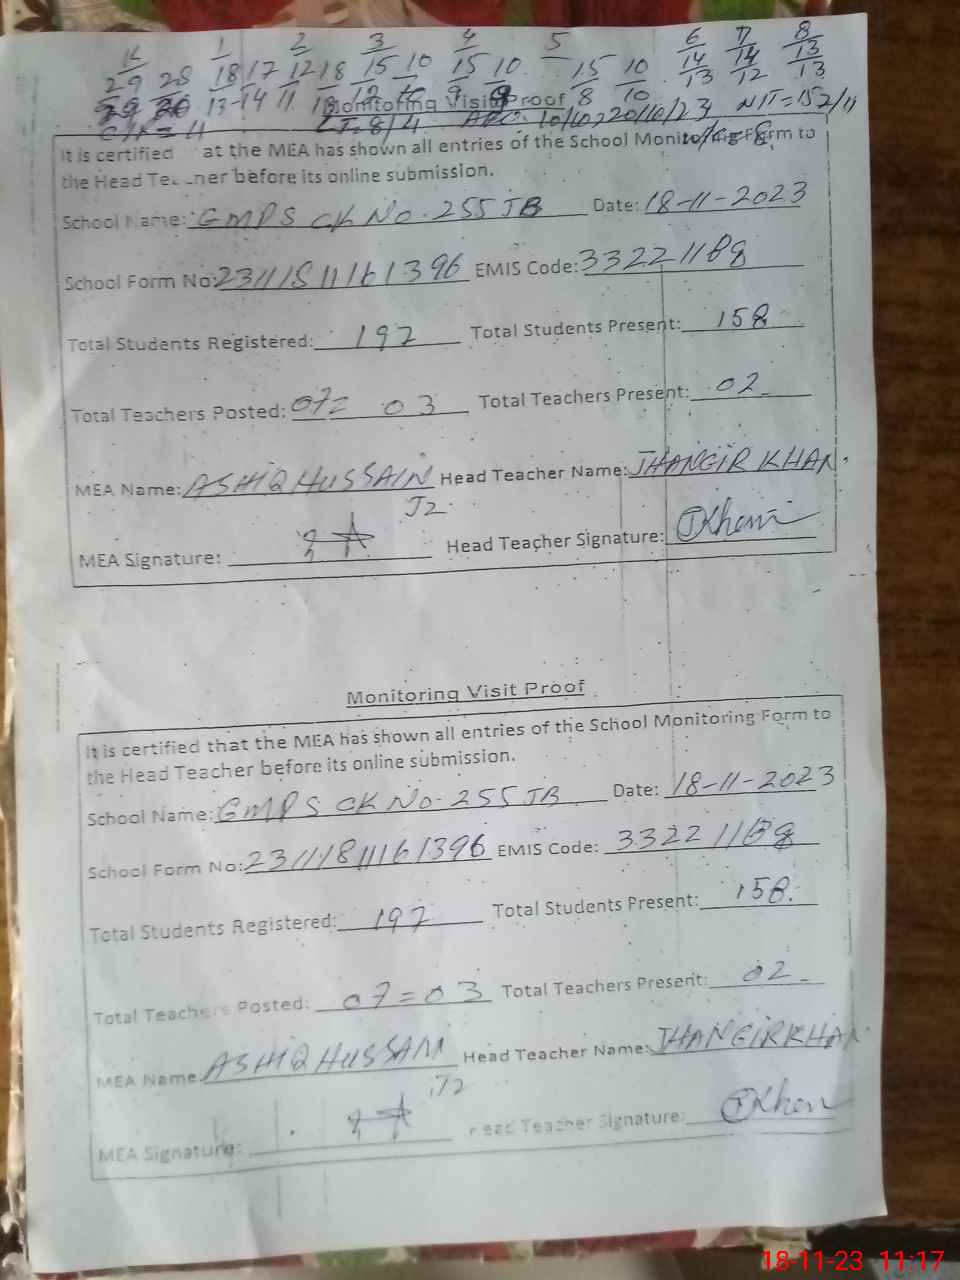 K 1 2 3 4 5 6 7 8
29 28 18 17 12 18 15 10 15 10 15 10 14 14 13
13-14 11 9 8 10 13 12 13
Monitoring Visit Proof
C/R = 11 LT=8/4 10/10, 20/10/23 NIT=152/11
It is certified at the MEA has shown all entries of the School Monitoring Form to
the Head Teacher before its online submission.
School Name: GMPS CK No. 255 JB Date: 18-11-2023
School Form No: EMIS Code:
Total Students Registered: 192 Total Students Present: 158
Total Teachers Posted: 07= 03 Total Teachers Present: 02
MEA Name: ASHIQ HUSSAIN Head Teacher Name: JHANGIR KHAN.
J2.
MEA Signature: Head Teacher Signature: JKhan
Monitoring Visit Proof
It is certified that the MEA has shown all entries of the School Monitoring Form to
the Head Teacher before its online submission.
School Name: GMPS CK No. 255 JB Date: 18-11-2023
School Form No: EMIS Code:
Total Students Registered: 192 Total Students Present: 158.
Total Teachers Posted: 07=03 Total Teachers Present: 02
MEA Name: ASHIQ HUSSAIN Head Teacher Name: JHANGIR KHAN
J2
MEA Signature: Head Teacher Signature: JKhan
18-11-23 11:17